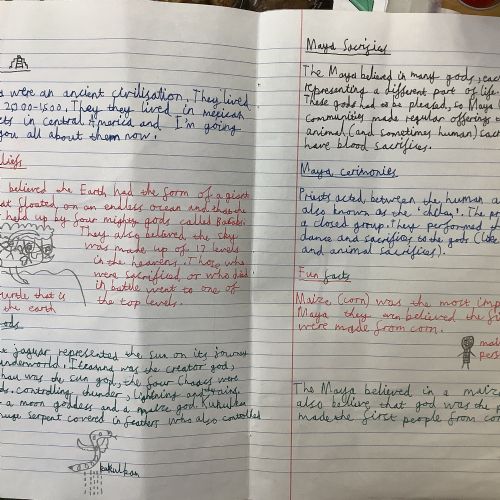 were an ancient civilisation. They lived
2,000-1,500. They they lived in mexican
in central America and I'm going
you all about them now.
believed the Earth had the form of a giant
that floated on an endless ocean and that the
held up by four mighty gods called Bacabs.
They also beleved the sky
was made up of 17 levels
in the heavens. Those who
were sacrificed or who died
in battle went to one of
the top levels.
turtle that is
the earth
ods
jaguar represented the Sun on its journey
underworld. Itzamna was the creator god,
hau was the sun god, the four Chages were
ds. controlling thunder, lightning and rains
a moon goddess and a maize god. Kukulkan
huge serpent covered in feathers who also controlled
kukulkan
Maya Sacrifies
The Maya believed in many gods, each
representing a different part of life.
These gods had to be pleased, so Maya
communities made regular offerings to
animal (and sometimes human) sacr
have blood sacrifices.
Maya cerimonies
Priests acted between the human a
also known as the 'chilan'. The p
a closed group. They performed th
dance and sacrifices to the gods (like
and animal sacrifies).
Fun facts
Maize (corn) was the most imp
Maya they believed the fi
were made from corn.
mai
pers
The Maya believed in a maize
also believe that god was the p
made the first people from cor